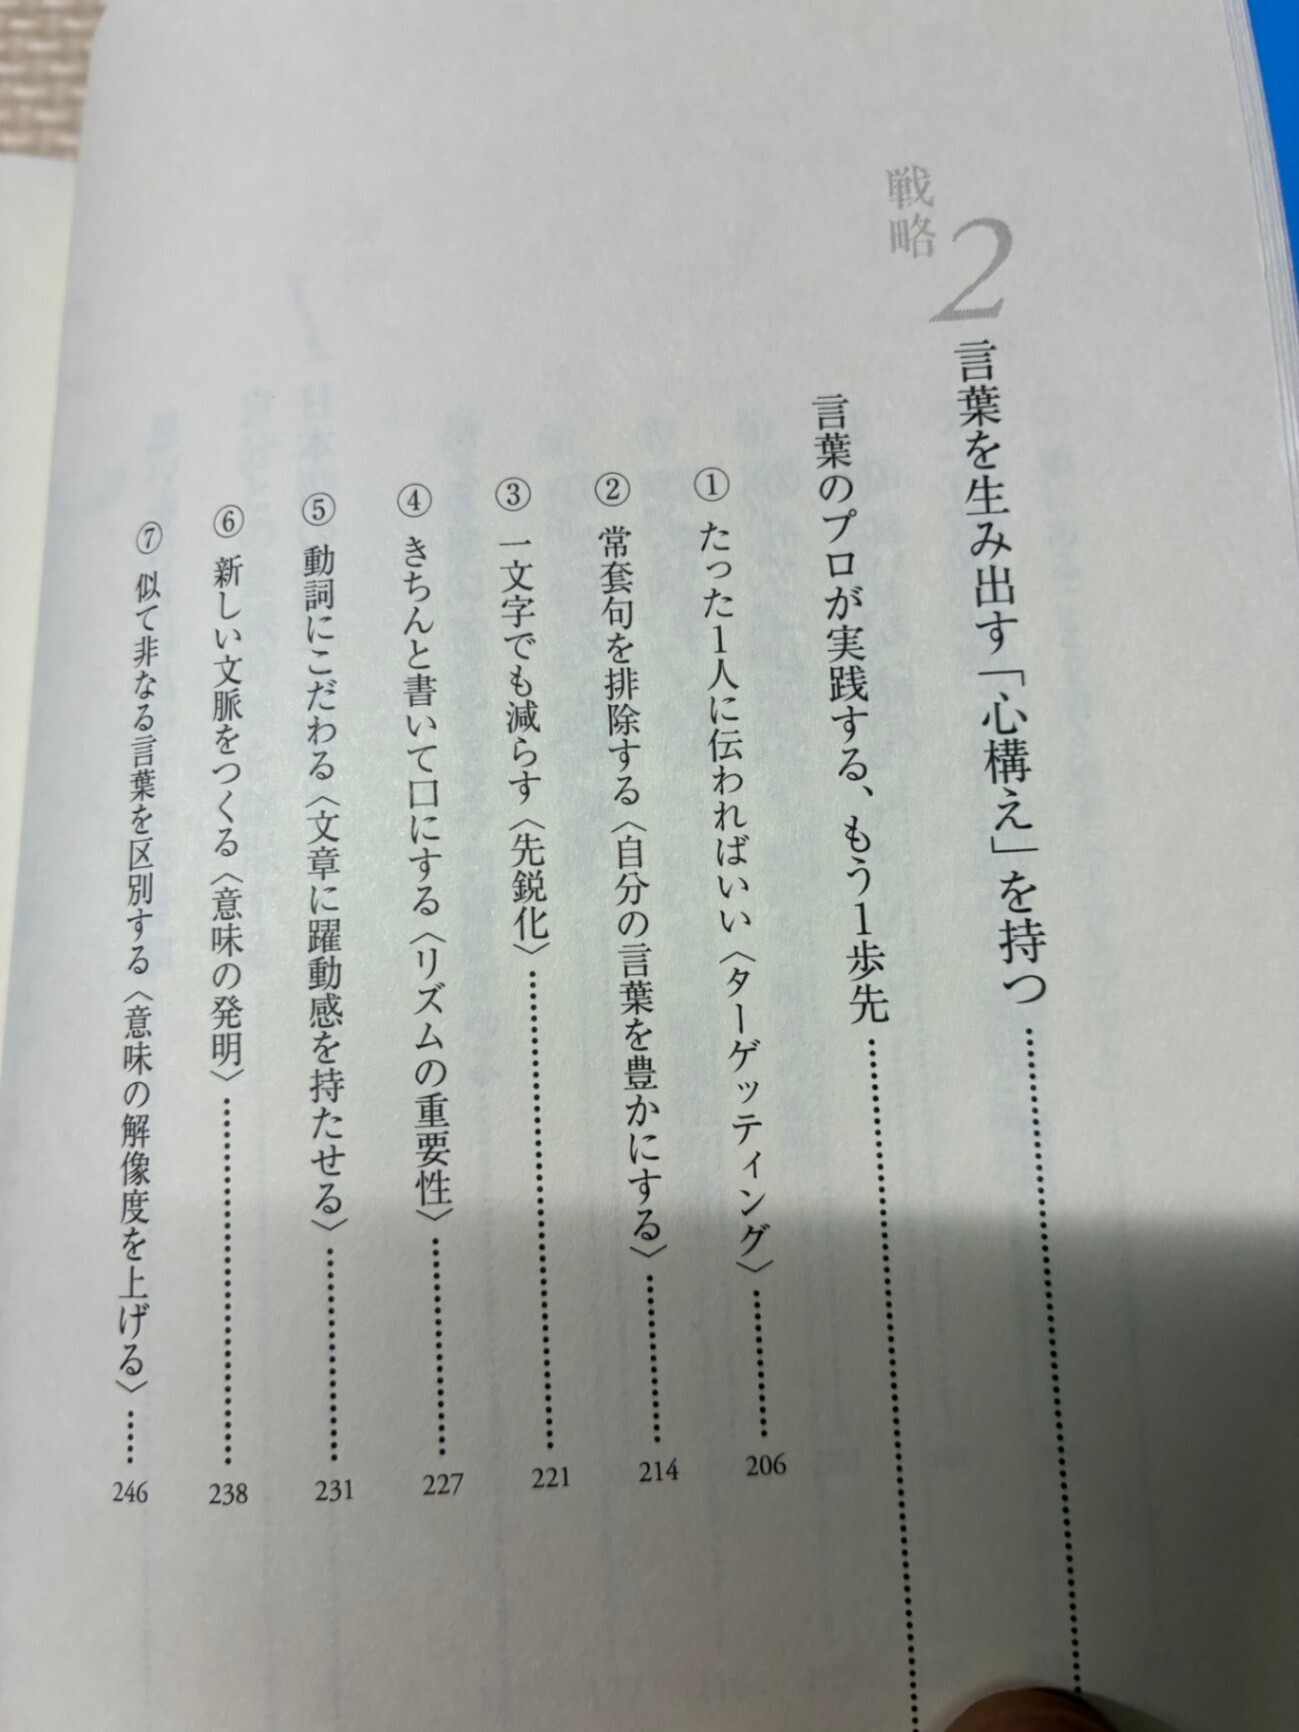 戦略2 言葉を生み出す「心構え」を持つ
言葉のプロが実践する、もう1歩先
① たった1人に伝わればいい〈ターゲッティング〉 206
② 常套句を排除する〈自分の言葉を豊かにする〉 214
③ 一文字でも減らす〈先鋭化〉 221
④ きちんと書いて口にする〈リズムの重要性〉 227
⑤ 動詞にこだわる〈文章に躍動感を持たせる〉 231
⑥ 新しい文脈をつくる〈意味の発明〉 238
⑦ 似て非なる言葉を区別する〈意味の解像度を上げる〉 246